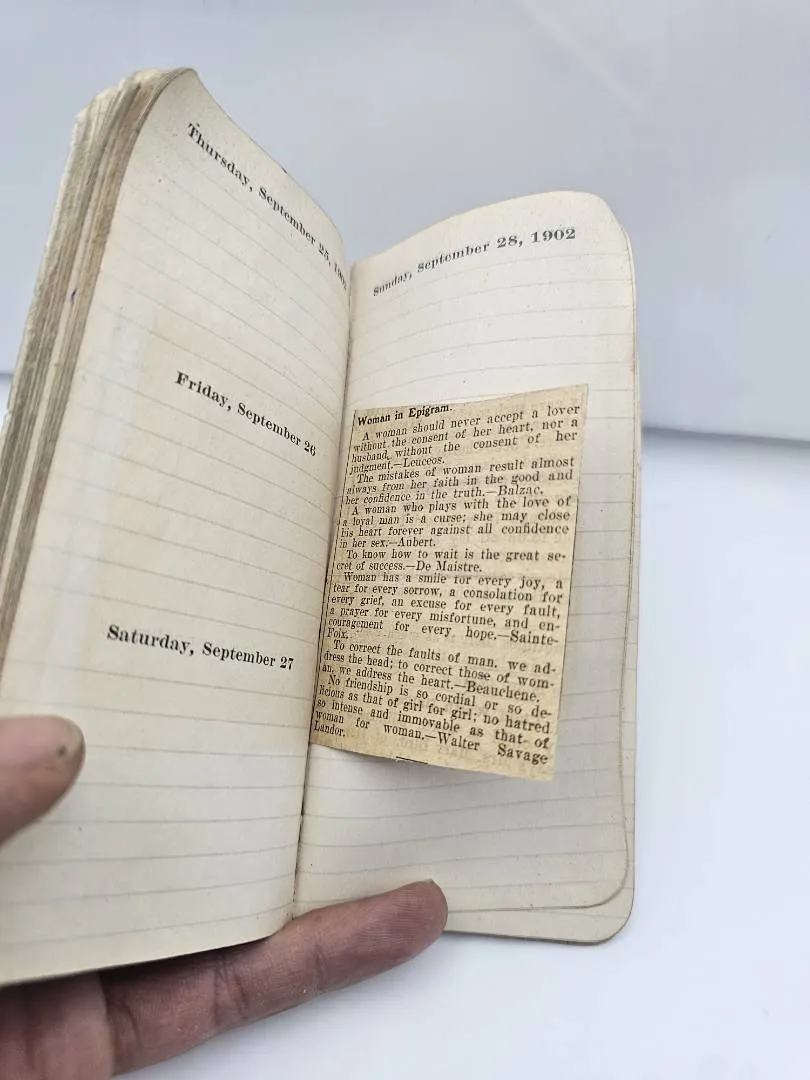 Thursday, September 25, 1902
Friday, September 26
Saturday, September 27
Sunday, September 28, 1902
Woman in Epigram.
A woman should never accept a lover
without the consent of her heart, nor a
husband without the consent of her
judgment.—Leuceos.
The mistakes of woman result almost
always from her faith in the good and
her confidence in the truth.—Balzac.
A woman who plays with the love of
a loyal man is a curse; she may close
his heart forever against all confidence
in her sex.—Aubert.
To know how to wait is the great se-
cret of success.—De Maistre.
Woman has a smile for every joy, a
tear for every sorrow, a consolation for
every grief, an excuse for every fault,
a prayer for every misfortune, and en-
couragement for every hope.—Sainte-
Foix.
To correct the faults of man, we ad-
dress the head; to correct those of wom-
an, we address the heart.—Beauchene.
No friendship is so cordial or so de-
licious as that of girl for girl; no hatred
so intense and immovable as that of
woman for woman.—Walter Savage
Landor.